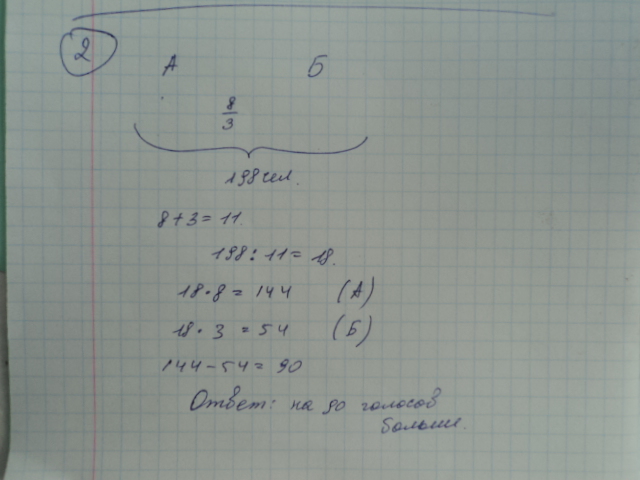 2
А Б
8
3
198 чел.
8+3=11.
198:11=18.
18·8=144 (А)
18·3=54 (Б)
144-54=90
Ответ: на 90 голосов
больше.